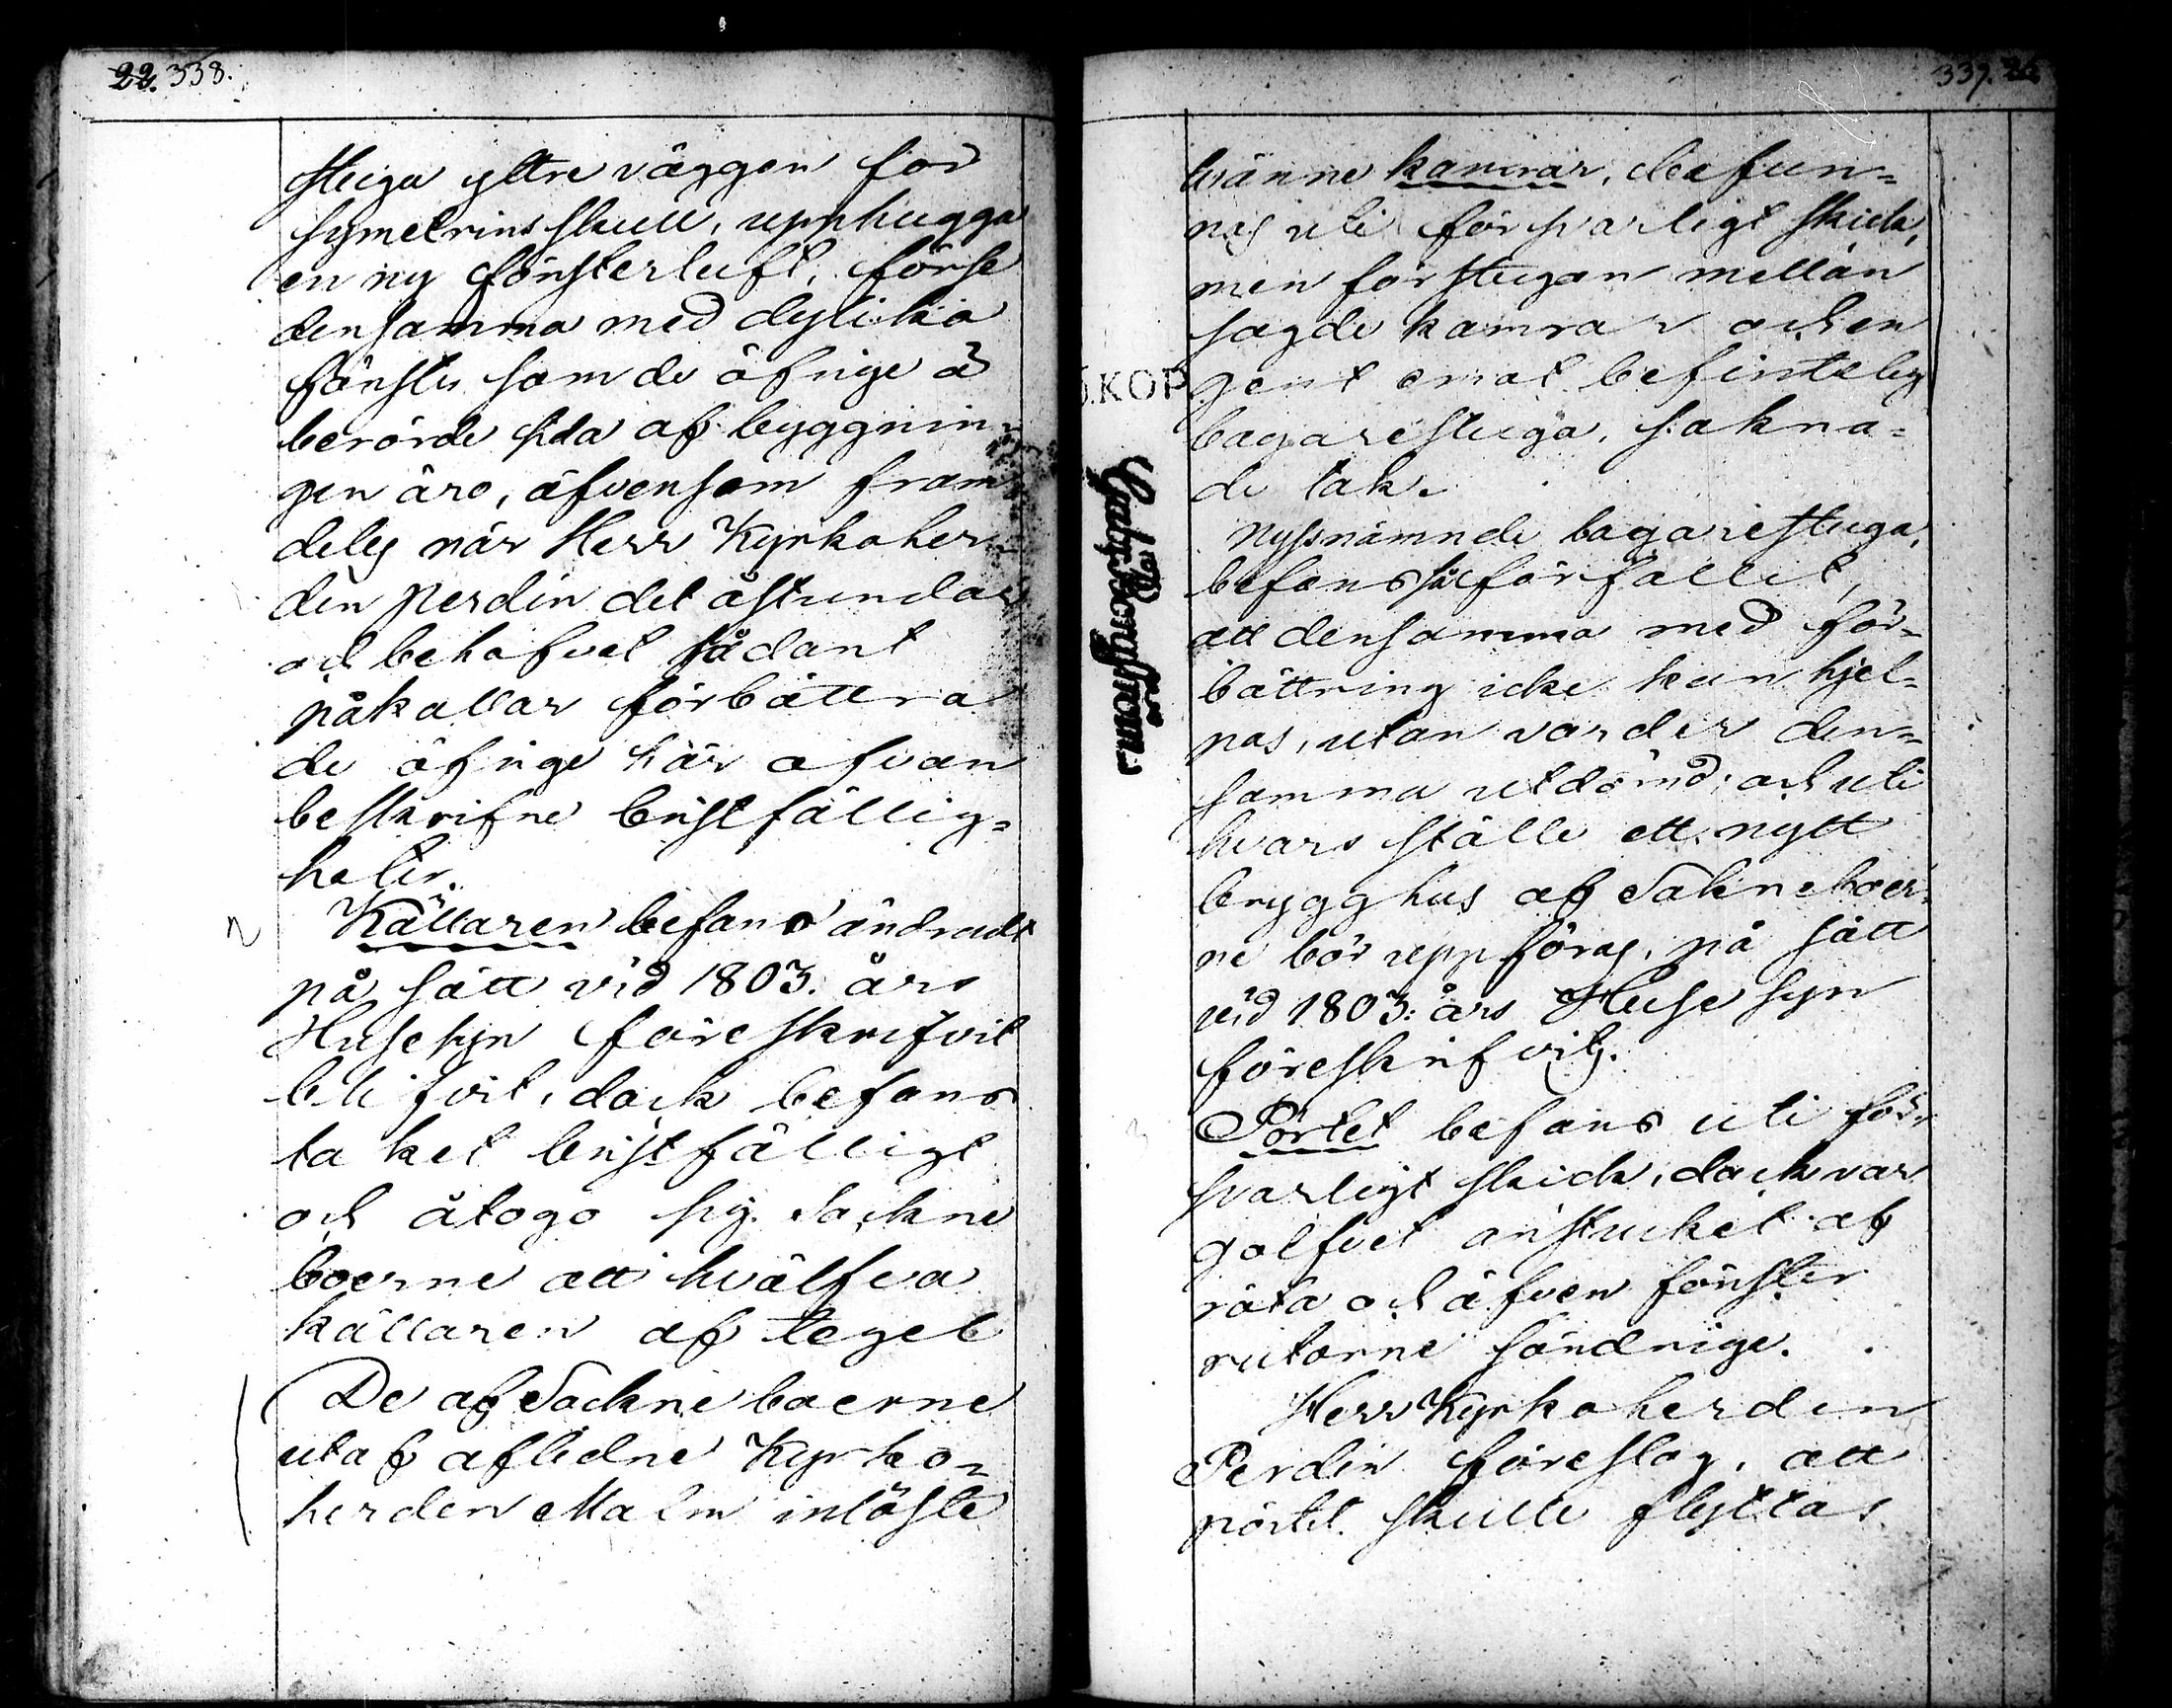 22. 338.
stuga yttre väggen för
symetrins skull, upphugga
en ny fönsterluft, förse
densamma med dylika
fönster som de öfrige å
berörde sida af byggnin-
gen äro, äfvensom fram-
deles när Herr Kyrkoher-
den Perdin det åstundar
och behofvet sådant
påkallar förbättra
de öfrige här ofvan
beskrifne bristfällig-
heter.
Källaren befans ändradt
på sätt vid 1803: års
Husesyn föreskrifvit
blifvit, dock befans
taket bristfälligt
och åtogo sig Sockne
boerne att hvälfva
källaren af tegel
De af Sockne boerne
utaf aflidne Kyrko-
herden Malm inlöste
339.
tvänne kamrar, befun-
nos uti försvarligt skick,
men förstugan mellan
sagde kamrar och en
gent emot befintelig
bagarestuga, sakna-
de tak.
Nyssnämnde bagarestuga,
befans så förfallet,
att densamma med för-
bättring icke kan hjel-
pas, utan varder den-
samma utdömd; och uti
hvars ställe ett nytt
brygghus af Sokneboer-
ne bör uppföras, på sätt
vid 1803: års Huse syn
föreskrifvits.
Pörtet befans uti för-
svarligt skick, dock var
golfvet anstucket af
röta och äfven fönster
rutorne söndrige.
Herr Kyrkoherden
Perdin föreslog, att
pörtet skulle flyttas